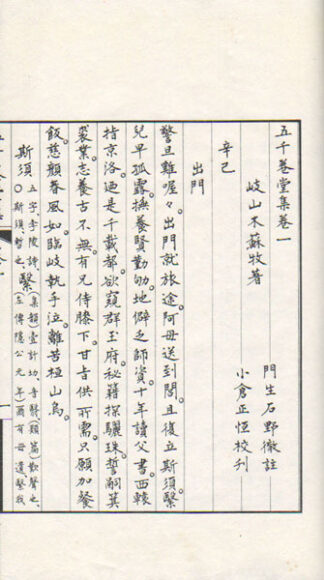 五千卷堂集卷一
門生石野徹註
岐山木蘇牧著
小倉正恆校刋
辛己
出門
警旦雞喔々出門就旅途。阿母送到閭。且復立斯須。繄
兒早孤露。撫養賢勤劬。地僻乏師資。十年讀父書。西轅
指京洛。迺是千載都。欲窺群玉府。秘籍探驪珠。誓嗣箕
裘業。志養古不無。有兄侍膝下。甘旨供所需。只願加餐
飯。慈顏春風如。臨岐執手泣。離苦桓山烏。
斯須 五字、李陵詩、〇斯須、暫也、 繄 (集韻)壹計切、音翳(類篇)歎聲也、(左傳隱公元年)爾有母遺繄我